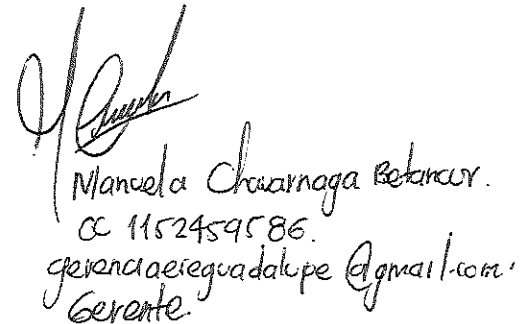 Manuela Chavarriaga Betancur.
CC 1152459586.
gerenciaeseguadalupe@gmail.com.
Gerente.